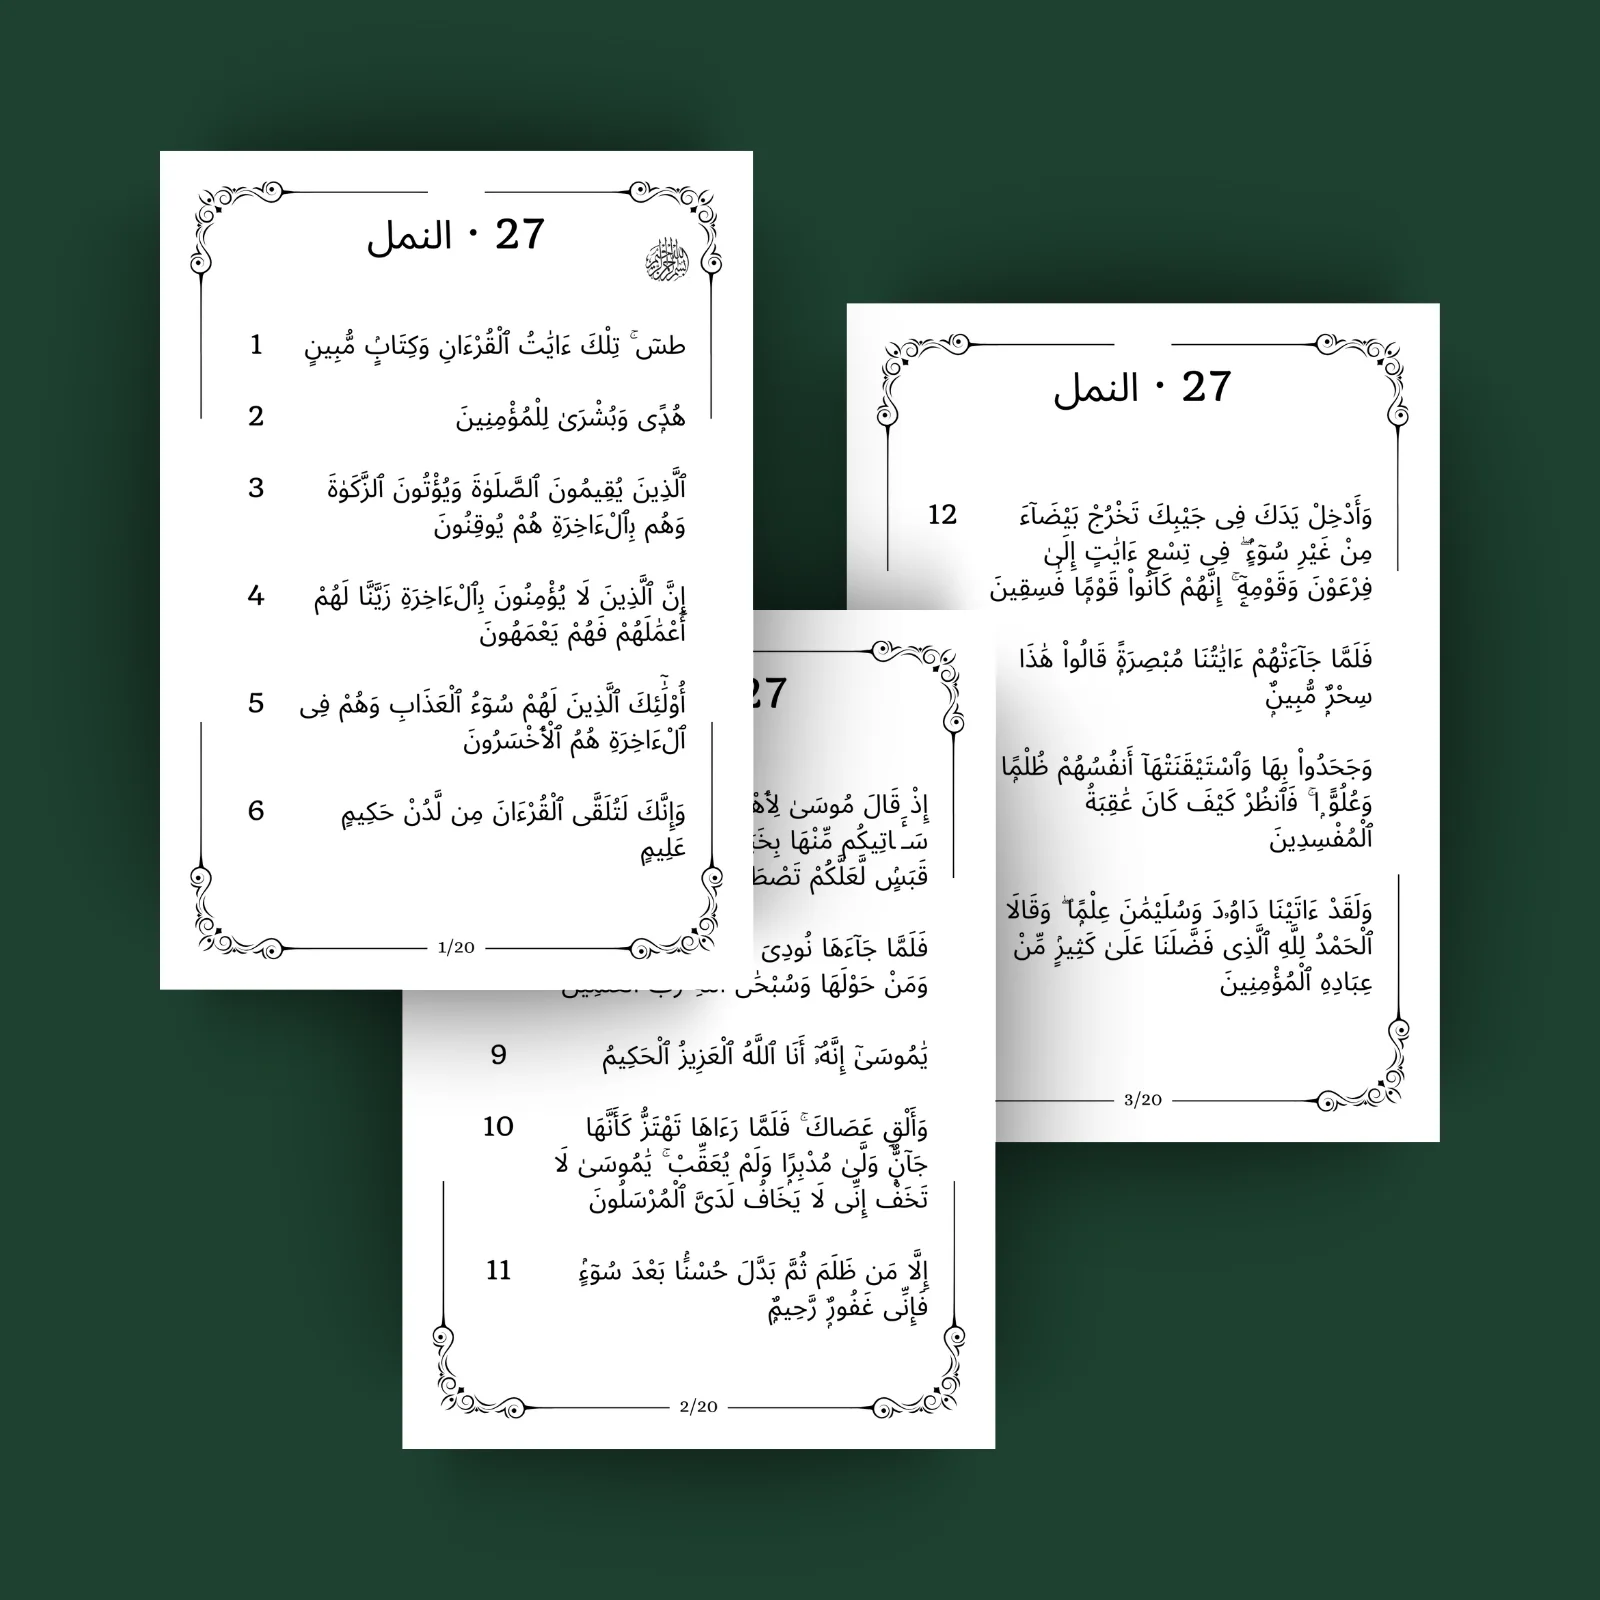 27 · النمل
1 طسٓ ۚ تِلْكَ ءَايَٰتُ ٱلْقُرْءَانِ وَكِتَابٍۢ مُّبِينٍ
2 هُدًۭى وَبُشْرَىٰ لِلْمُؤْمِنِينَ
3 ٱلَّذِينَ يُقِيمُونَ ٱلصَّلَوٰةَ وَيُؤْتُونَ ٱلزَّكَوٰةَ
وَهُم بِٱلْءَاخِرَةِ هُمْ يُوقِنُونَ
4 إِنَّ ٱلَّذِينَ لَا يُؤْمِنُونَ بِٱلْءَاخِرَةِ زَيَّنَّا لَهُمْ
أَعْمَٰلَهُمْ فَهُمْ يَعْمَهُونَ
5 أُو۟لَٰٓئِكَ ٱلَّذِينَ لَهُمْ سُوٓءُ ٱلْعَذَابِ وَهُمْ فِى
ٱلْءَاخِرَةِ هُمُ ٱلْأَخْسَرُونَ
6 وَإِنَّكَ لَتُلَقَّى ٱلْقُرْءَانَ مِن لَّدُنْ حَكِيمٍ
عَلِيمٍ
1/20
27
إِذْ قَالَ مُوسَىٰ
سَـَٔاتِيكُم مِّنْهَا
قَبَسٍۢ لَّعَلَّكُمْ
فَلَمَّا جَآءَهَا نُودِىَ
وَمَنْ حَوْلَهَا وَسُبْحَٰنَ ٱللَّهِ رَبِّ ٱلْعَٰلَمِينَ
9 يَٰمُوسَىٰٓ إِنَّهُۥٓ أَنَا ٱللَّهُ ٱلْعَزِيزُ ٱلْحَكِيمُ
10 وَأَلْقِ عَصَاكَ ۚ فَلَمَّا رَءَاهَا تَهْتَزُّ كَأَنَّهَا
جَآنٌّۭ وَلَّىٰ مُدْبِرًۭا وَلَمْ يُعَقِّبْ ۚ يَٰمُوسَىٰ لَا
تَخَفْ إِنِّى لَا يَخَافُ لَدَىَّ ٱلْمُرْسَلُونَ
11 إِلَّا مَن ظَلَمَ ثُمَّ بَدَّلَ حُسْنًۢا بَعْدَ سُوٓءٍۢ
فَإِنِّى غَفُورٌۭ رَّحِيمٌۭ
2/20
27 · النمل
12 وَأَدْخِلْ يَدَكَ فِى جَيْبِكَ تَخْرُجْ بَيْضَآءَ
مِنْ غَيْرِ سُوٓءٍۢ ۖ فِى تِسْعِ ءَايَٰتٍ إِلَىٰ
فِرْعَوْنَ وَقَوْمِهِۦٓ ۚ إِنَّهُمْ كَانُوا۟ قَوْمًۭا فَٰسِقِينَ
فَلَمَّا جَآءَتْهُمْ ءَايَٰتُنَا مُبْصِرَةًۭ قَالُوا۟ هَٰذَا
سِحْرٌۭ مُّبِينٌۭ
وَجَحَدُوا۟ بِهَا وَٱسْتَيْقَنَتْهَآ أَنفُسُهُمْ ظُلْمًۭا
وَعُلُوًّۭا ۚ فَٱنظُرْ كَيْفَ كَانَ عَٰقِبَةُ
ٱلْمُفْسِدِينَ
وَلَقَدْ ءَاتَيْنَا دَاوُۥدَ وَسُلَيْمَٰنَ عِلْمًۭا ۖ وَقَالَا
ٱلْحَمْدُ لِلَّهِ ٱلَّذِى فَضَّلَنَا عَلَىٰ كَثِيرٍۢ مِّنْ
عِبَادِهِ ٱلْمُؤْمِنِينَ
3/20